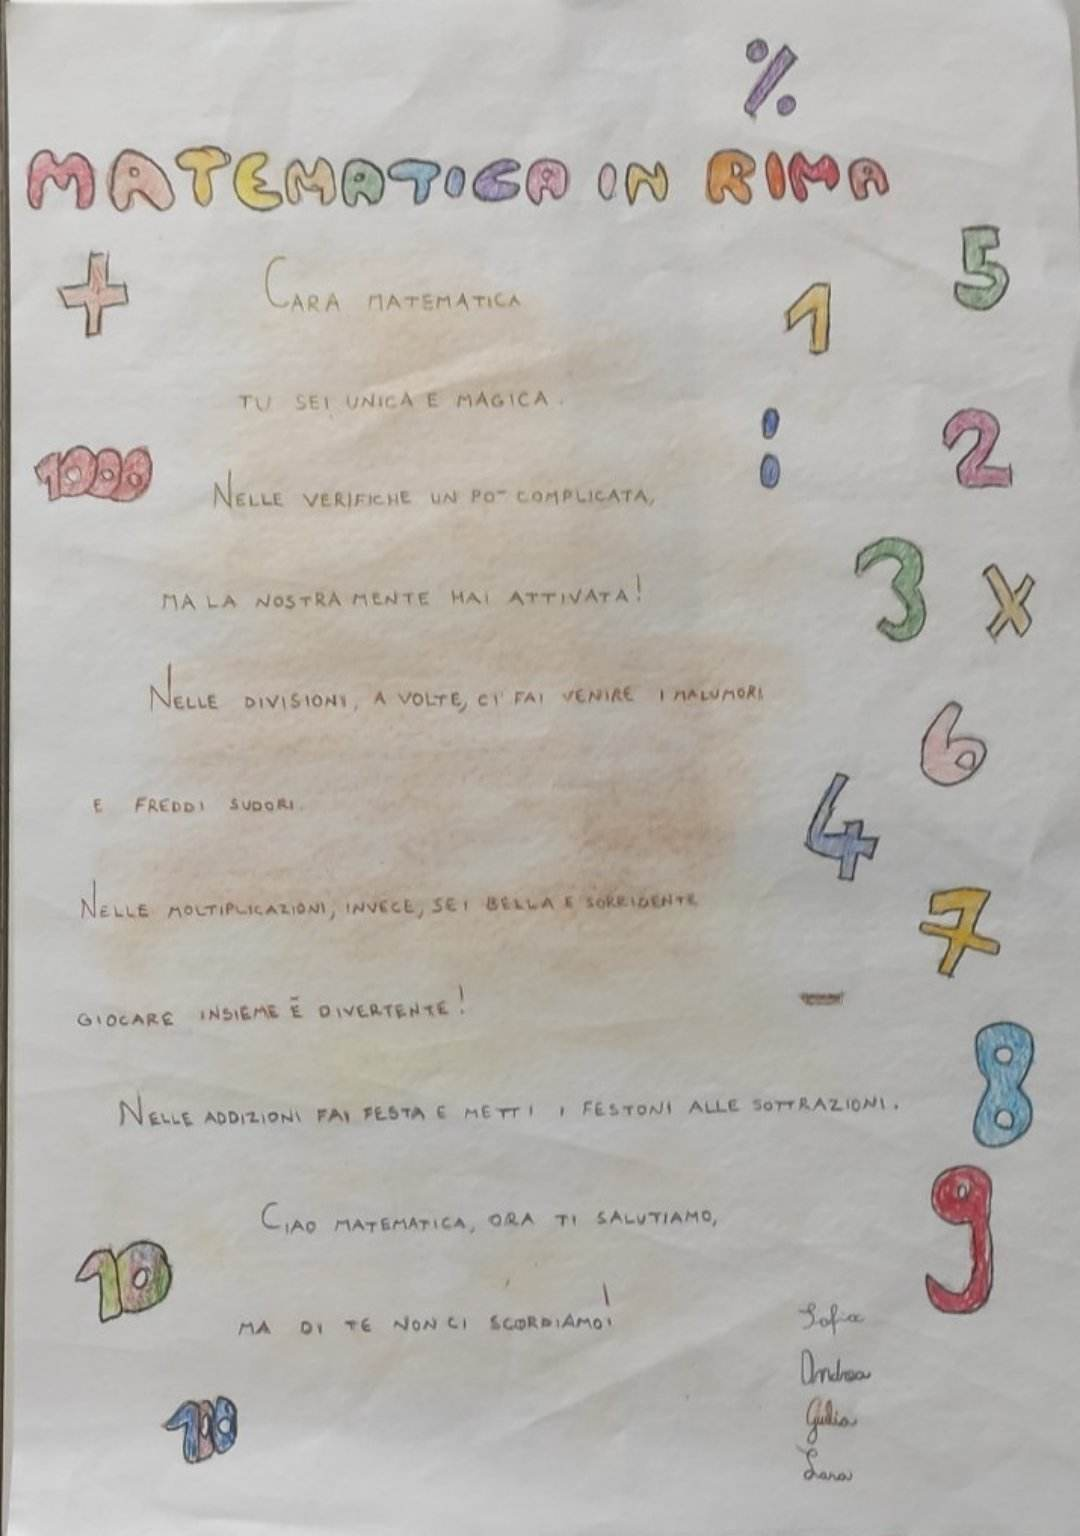 %
MATEMATICA IN RIMA
+
5
CARA MATEMATICA
1
TU SEI UNICA E MAGICA.
:
2
1000
NELLE VERIFICHE UN PO' COMPLICATA,
3
x
MA LA NOSTRA MENTE HAI ATTIVATA!
NELLE DIVISIONI, A VOLTE, CI FAI VENIRE I MALUMORI
6
E FREDDI SUDORI.
4
NELLE MOLTIPLICAZIONI, INVECE, SEI BELLA E SORRIDENTE
7
GIOCARE INSIEME È DIVERTENTE!
-
8
NELLE ADDIZIONI FAI FESTA E METTI I FESTONI ALLE SOTTRAZIONI.
9
CIAO MATEMATICA, ORA TI SALUTIAMO,
10
MA DI TE NON CI SCORDIAMO!
100
Sofia
Andrea
Giulia
Lara